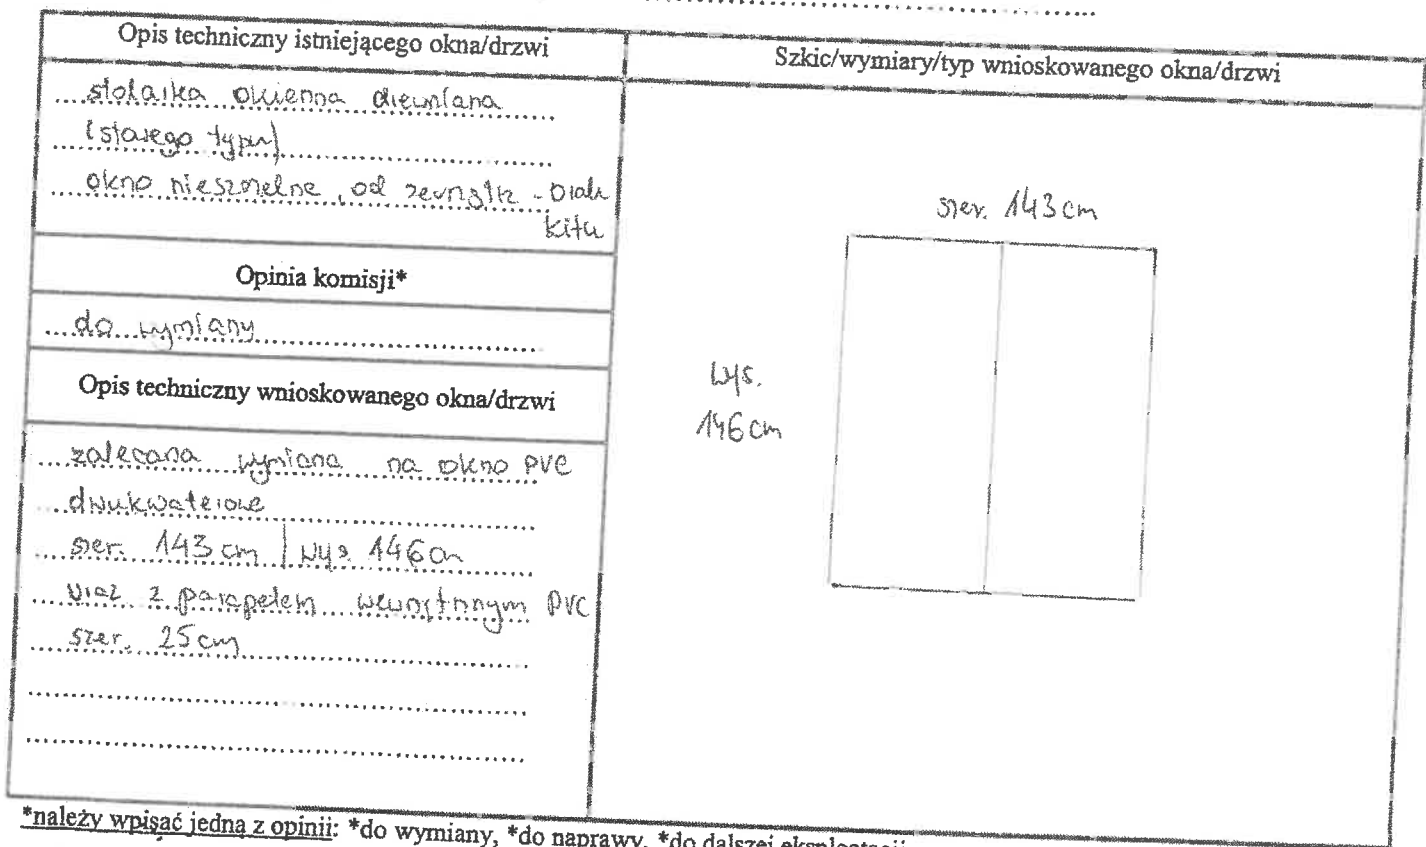 Opis techniczny istniejącego okna/drzwi
stolarka okienna drewniana
(starego typu)
okno nieszczelne, od zewnątrz - brak
kitu
Opinia komisji*
do wymiany
Opis techniczny wnioskowanego okna/drzwi
zalecana wymiana na okno PVC
dwukwaterowe
szer. 143 cm | wys. 146 cm
wraz z parapetem wewnętrznym PVC
szer. 25 cm
Szkic/wymiary/typ wnioskowanego okna/drzwi
szer. 143 cm
wys.
146 cm
*należy wpisać jedną z opinii: *do wymiany, *do naprawy, *do dalszej eksploatacji